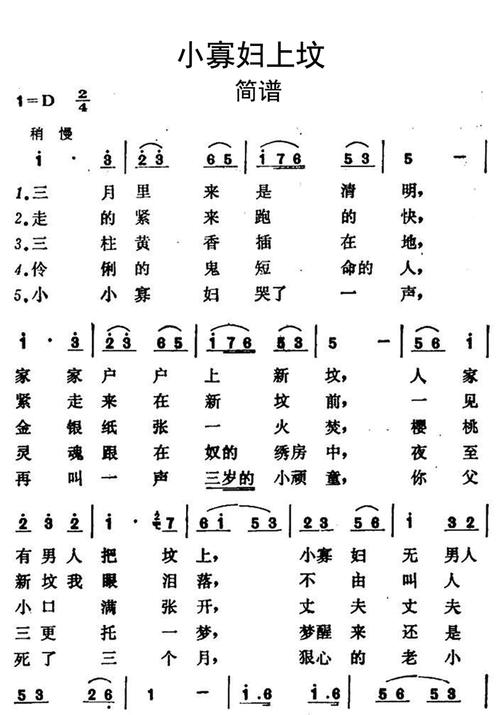 小寡妇上坟
简谱
1=D 2/4
稍 慢
i · 3 | 2 3 6 5 | i 7 6 5 3 | 5 - |
1.三 月 里 来 是 清 明,
2.走 的 紧 来 跑 的 快,
3.三 柱 黄 香 插 在 地,
4.伶 俐 的 鬼 短 命 的 人,
5.小 小 寡 妇 哭 了 一 声,
i · 3 | 2 3 6 5 | i 7 6 5 | 5 - | 5 6 i |
家 家 户 户 上 新 坟, 人 家
紧 走 来 在 新 坟 前, 一 见
金 银 纸 张 一 火 焚, 樱 桃
灵 魂 跟 在 奴 的 绣 房 中, 夜 至
再 叫 一 声 三 岁 的 小 顽 童, 你 父
2 3 5 3 | 2 · 7 | 6 i 5 3 | 5 5 6 | i 3 2 |
有 男 人 把 坟 上, 小 寡 妇 无 男 人
新 坟 我 眼 泪 落, 不 由 叫 人
小 口 满 张 开, 丈 夫 丈 夫
三 更 托 一 梦, 梦 醒 来 还 是
死 了 三 个 月, 狠 心 的 老 小
5 3 2 6 | 1 - | i · 6 i · 6 | 5 6 5 3 5 3 |